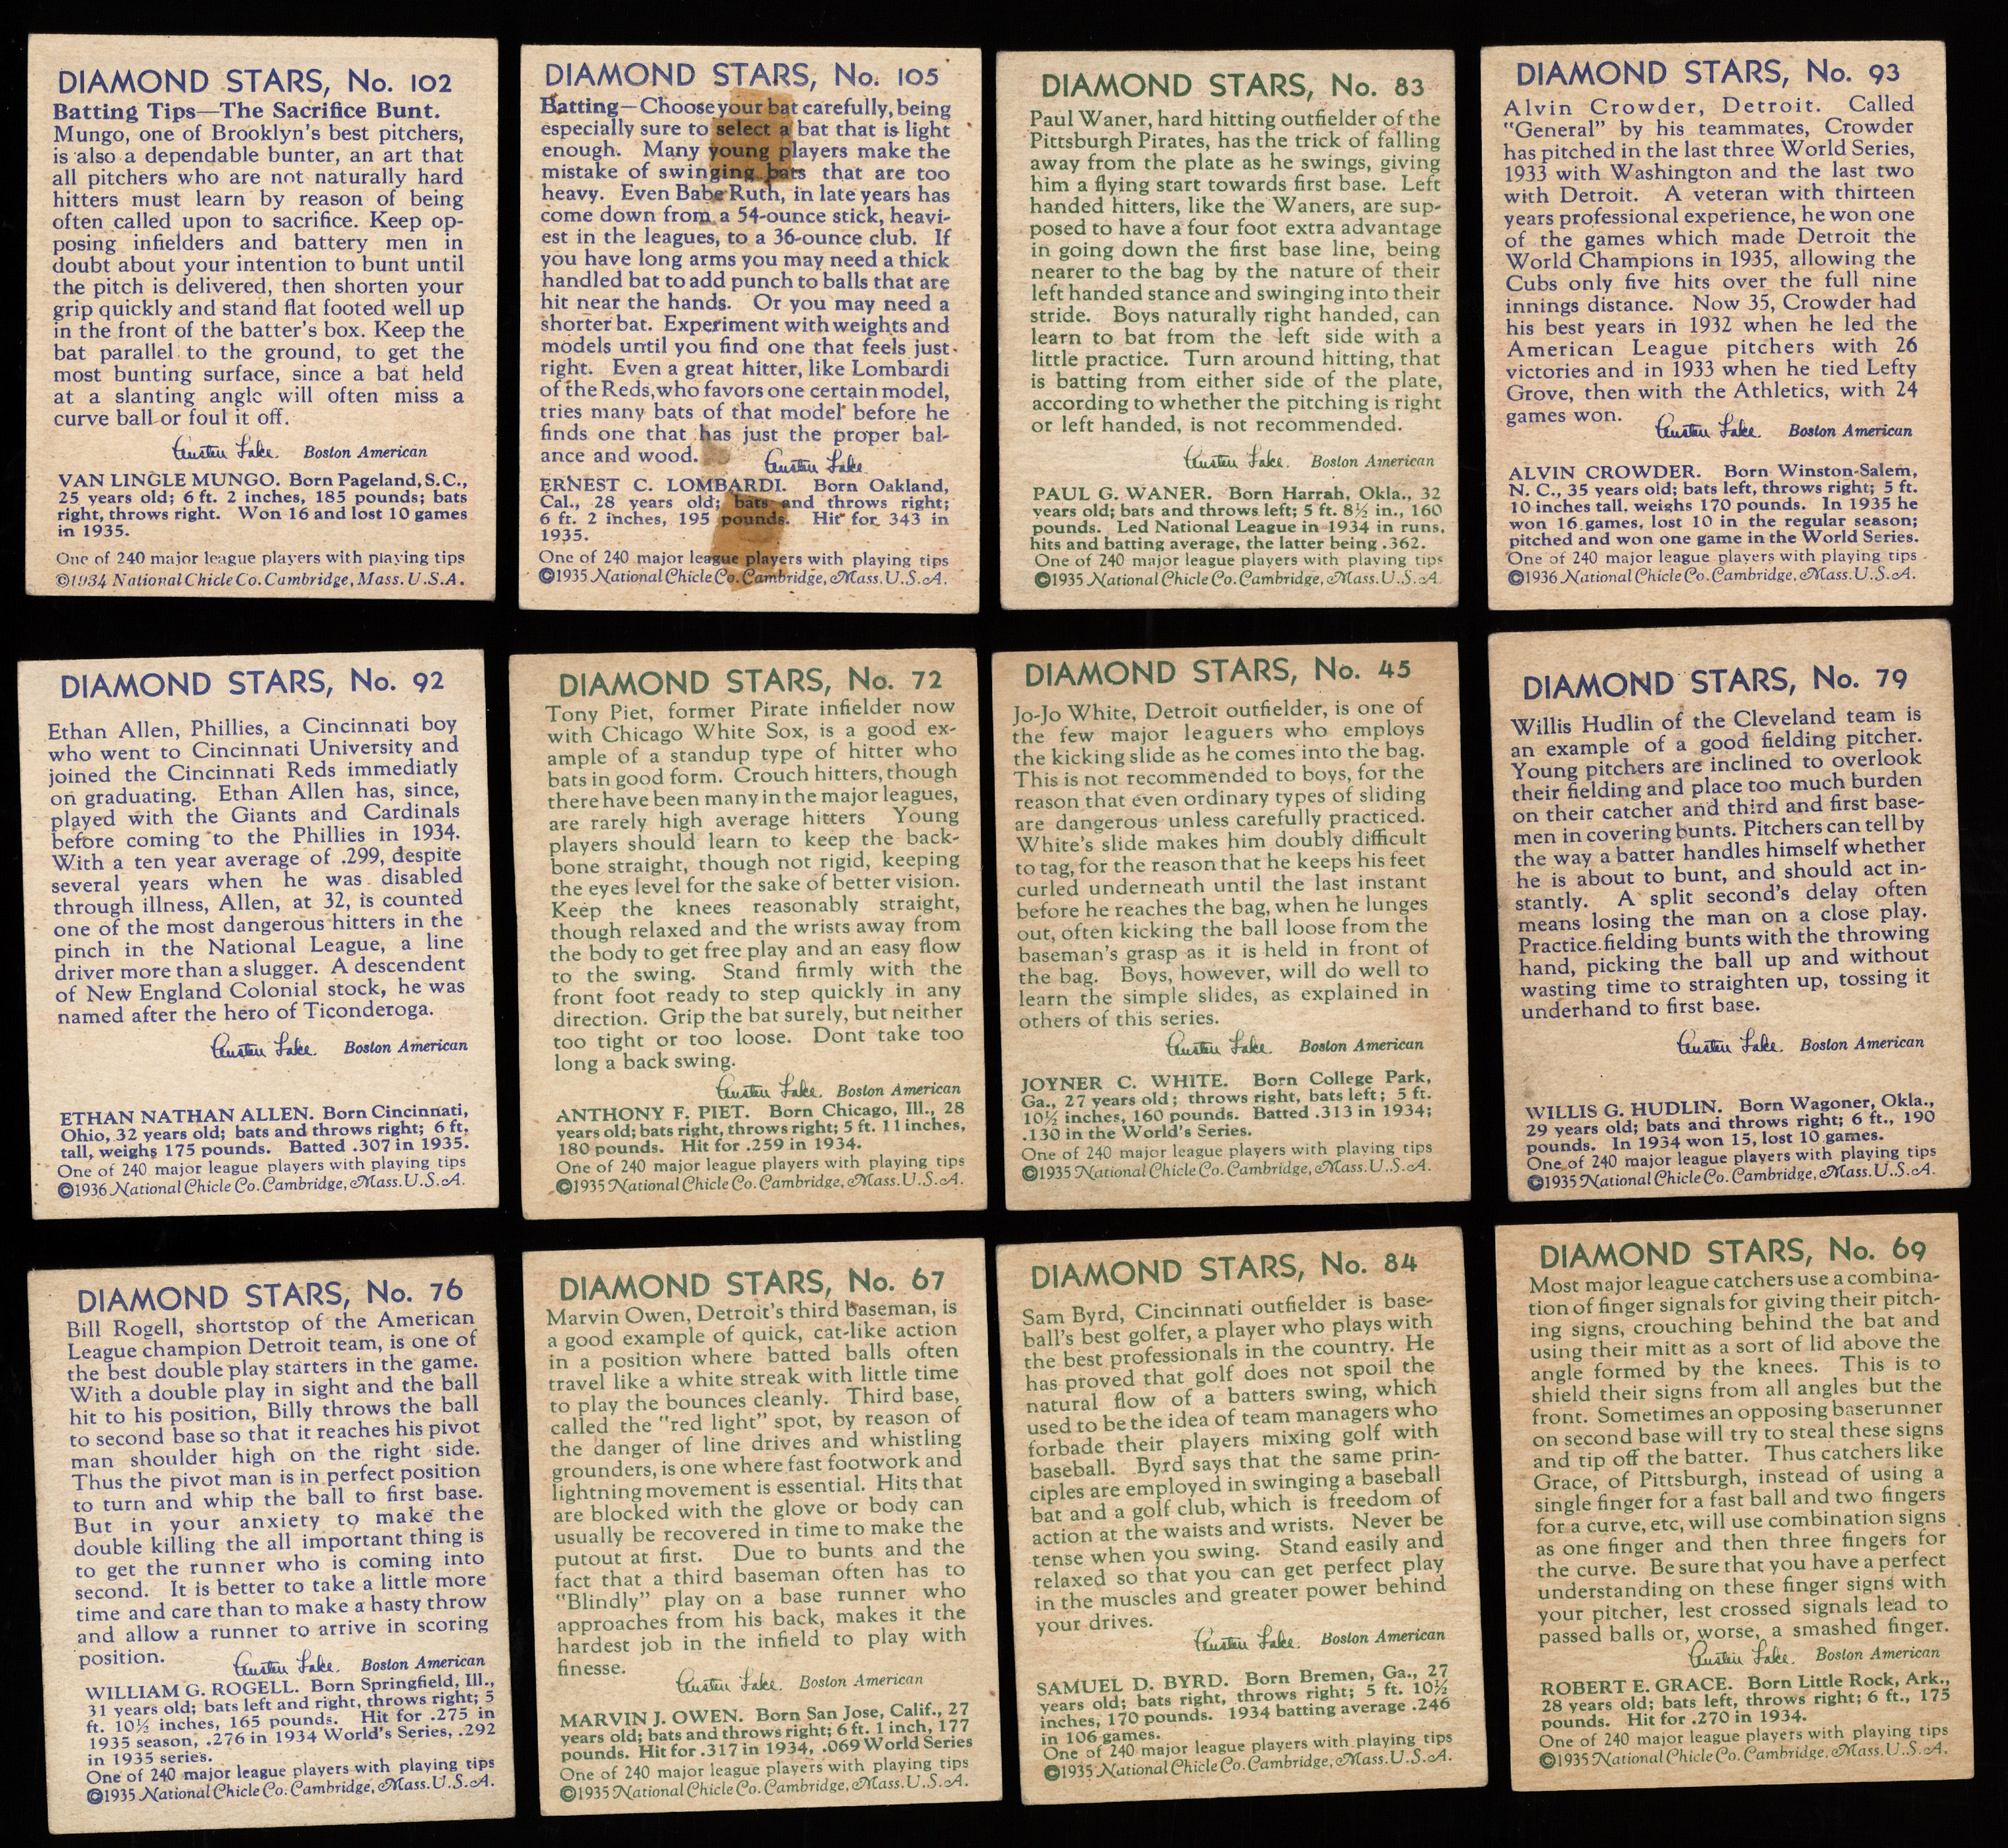 DIAMOND STARS, No. 102
Batting Tips—The Sacrifice Bunt.
Mungo, one of Brooklyn's best pitchers,
is also a dependable bunter, an art that
all pitchers who are not naturally hard
hitters must learn by reason of being
often called upon to sacrifice. Keep op-
posing infielders and battery men in
doubt about your intention to bunt until
the pitch is delivered, then shorten your
grip quickly and stand flat footed well up
in the front of the batter's box. Keep the
bat parallel to the ground, to get the
most bunting surface, since a bat held
at a slanting angle will often miss a
curve ball or foul it off.
Austen Lake. Boston American
VAN LINGLE MUNGO. Born Pageland, S.C.,
25 years old; 6 ft. 2 inches, 185 pounds; bats
right, throws right. Won 16 and lost 10 games
in 1935.
One of 240 major league players with playing tips
©1934 National Chicle Co. Cambridge, Mass. U.S.A.
DIAMOND STARS, No. 105
Batting—Choose your bat carefully, being
especially sure to select a bat that is light
enough. Many young players make the
mistake of swinging bats that are too
heavy. Even Babe Ruth, in late years has
come down from a 54-ounce stick, heavi-
est in the leagues, to a 36-ounce club. If
you have long arms you may need a thick
handled bat to add punch to balls that are
hit near the hands. Or you may need a
shorter bat. Experiment with weights and
models until you find one that feels just
right. Even a great hitter, like Lombardi
of the Reds, who favors one certain model,
tries many bats of that model before he
finds one that has just the proper bal-
ance and wood. Austen Lake
ERNEST C. LOMBARDI. Born Oakland,
Cal., 28 years old; bats and throws right;
6 ft. 2 inches, 195 pounds. Hit for 343 in
1935.
One of 240 major league players with playing tips
©1935 National Chicle Co. Cambridge, Mass. U.S.A.
DIAMOND STARS, No. 83
Paul Waner, hard hitting outfielder of the
Pittsburgh Pirates, has the trick of falling
away from the plate as he swings, giving
him a flying start towards first base. Left
handed hitters, like the Waners, are sup-
posed to have a four foot extra advantage
in going down the first base line, being
nearer to the bag by the nature of their
left handed stance and swinging into their
stride. Boys naturally right handed, can
learn to bat from the left side with a
little practice. Turn around hitting, that
is batting from either side of the plate,
according to whether the pitching is right
or left handed, is not recommended.
Austen Lake. Boston American
PAUL G. WANER. Born Harrah, Okla., 32
years old; bats and throws left; 5 ft. 8½ in., 160
pounds. Led National League in 1934 in runs,
hits and batting average, the latter being .362.
One of 240 major league players with playing tips
©1935 National Chicle Co. Cambridge, Mass. U.S.A.
DIAMOND STARS, No. 93
Alvin Crowder, Detroit. Called
"General" by his teammates, Crowder
has pitched in the last three World Series,
1933 with Washington and the last two
with Detroit. A veteran with thirteen
years professional experience, he won one
of the games which made Detroit the
World Champions in 1935, allowing the
Cubs only five hits over the full nine
innings distance. Now 35, Crowder had
his best years in 1932 when he led the
American League pitchers with 26
victories and in 1933 when he tied Lefty
Grove, then with the Athletics, with 24
games won. Austen Lake. Boston American
ALVIN CROWDER. Born Winston-Salem,
N. C., 35 years old; bats left, throws right; 5 ft.
10 inches tall, weighs 170 pounds. In 1935 he
won 16 games, lost 10 in the regular season;
pitched and won one game in the World Series.
One of 240 major league players with playing tips
©1936 National Chicle Co. Cambridge, Mass. U.S.A.
DIAMOND STARS, No. 92
Ethan Allen, Phillies, a Cincinnati boy
who went to Cincinnati University and
joined the Cincinnati Reds immediatly
on graduating. Ethan Allen has, since,
played with the Giants and Cardinals
before coming to the Phillies in 1934.
With a ten year average of .299, despite
several years when he was disabled
through illness, Allen, at 32, is counted
one of the most dangerous hitters in the
pinch in the National League, a line
driver more than a slugger. A descendent
of New England Colonial stock, he was
named after the hero of Ticonderoga.
Austen Lake. Boston American
ETHAN NATHAN ALLEN. Born Cincinnati,
Ohio, 32 years old; bats and throws right; 6 ft.
tall, weighs 175 pounds. Batted .307 in 1935.
One of 240 major league players with playing tips
©1936 National Chicle Co. Cambridge, Mass. U.S.A.
DIAMOND STARS, No. 72
Tony Piet, former Pirate infielder now
with Chicago White Sox, is a good ex-
ample of a standup type of hitter who
bats in good form. Crouch hitters, though
there have been many in the major leagues,
are rarely high average hitters Young
players should learn to keep the back-
bone straight, though not rigid, keeping
the eyes level for the sake of better vision.
Keep the knees reasonably straight,
though relaxed and the wrists away from
the body to get free play and an easy flow
to the swing. Stand firmly with the
front foot ready to step quickly in any
direction. Grip the bat surely, but neither
too tight or too loose. Dont take too
long a back swing.
Austen Lake. Boston American
ANTHONY F. PIET. Born Chicago, Ill., 28
years old; bats right, throws right; 5 ft. 11 inches,
180 pounds. Hit for .259 in 1934.
One of 240 major league players with playing tips
©1935 National Chicle Co. Cambridge, Mass. U.S.A.
DIAMOND STARS, No. 45
Jo-Jo White, Detroit outfielder, is one of
the few major leaguers who employs
the kicking slide as he comes into the bag.
This is not recommended to boys, for the
reason that even ordinary types of sliding
are dangerous unless carefully practiced.
White's slide makes him doubly difficult
to tag, for the reason that he keeps his feet
curled underneath until the last instant
before he reaches the bag, when he lunges
out, often kicking the ball loose from the
baseman's grasp as it is held in front of
the bag. Boys, however, will do well to
learn the simple slides, as explained in
others of this series.
Austen Lake. Boston American
JOYNER C. WHITE. Born College Park,
Ga., 27 years old; throws right, bats left; 5 ft.
10½ inches, 160 pounds. Batted .313 in 1934;
.130 in the World's Series.
One of 240 major league players with playing tips
©1935 National Chicle Co. Cambridge, Mass. U.S.A.
DIAMOND STARS, No. 79
Willis Hudlin of the Cleveland team is
an example of a good fielding pitcher.
Young pitchers are inclined to overlook
their fielding and place too much burden
on their catcher and third and first base-
men in covering bunts. Pitchers can tell by
the way a batter handles himself whether
he is about to bunt, and should act in-
stantly. A split second's delay often
means losing the man on a close play.
Practice fielding bunts with the throwing
hand, picking the ball up and without
wasting time to straighten up, tossing it
underhand to first base.
Austen Lake. Boston American
WILLIS G. HUDLIN. Born Wagoner, Okla.,
29 years old; bats and throws right; 6 ft., 190
pounds. In 1934 won 15, lost 10 games.
One of 240 major league players with playing tips
©1935 National Chicle Co. Cambridge, Mass. U.S.A.
DIAMOND STARS, No. 76
Bill Rogell, shortstop of the American
League champion Detroit team, is one of
the best double play starters in the game.
With a double play in sight and the ball
hit to his position, Billy throws the ball
to second base so that it reaches his pivot
man shoulder high on the right side.
Thus the pivot man is in perfect position
to turn and whip the ball to first base.
But in your anxiety to make the
double killing the all important thing is
to get the runner who is coming into
second. It is better to take a little more
time and care than to make a hasty throw
and allow a runner to arrive in scoring
position. Austen Lake. Boston American
WILLIAM G. ROGELL. Born Springfield, Ill.,
31 years old; bats left and right, throws right; 5
ft. 10½ inches, 165 pounds. Hit for .275 in
1935 season, .276 in 1934 World's Series, .292
in 1935 series.
One of 240 major league players with playing tips
©1935 National Chicle Co. Cambridge, Mass. U.S.A.
DIAMOND STARS, No. 67
Marvin Owen, Detroit's third baseman, is
a good example of quick, cat-like action
in a position where batted balls often
travel like a white streak with little time
to play the bounces cleanly. Third base,
called the "red light" spot, by reason of
the danger of line drives and whistling
grounders, is one where fast footwork and
lightning movement is essential. Hits that
are blocked with the glove or body can
usually be recovered in time to make the
putout at first. Due to bunts and the
fact that a third baseman often has to
"Blindly" play on a base runner who
approaches from his back, makes it the
hardest job in the infield to play with
finesse.
Austen Lake. Boston American
MARVIN J. OWEN. Born San Jose, Calif., 27
years old; bats and throws right; 6 ft. 1 inch, 177
pounds. Hit for .317 in 1934, .069 World Series
One of 240 major league players with playing tips
©1935 National Chicle Co. Cambridge, Mass. U.S.A.
DIAMOND STARS, No. 84
Sam Byrd, Cincinnati outfielder is base-
ball's best golfer, a player who plays with
the best professionals in the country. He
has proved that golf does not spoil the
natural flow of a batters swing, which
used to be the idea of team managers who
forbade their players mixing golf with
baseball. Byrd says that the same prin-
ciples are employed in swinging a baseball
bat and a golf club, which is freedom of
action at the waists and wrists. Never be
tense when you swing. Stand easily and
relaxed so that you can get perfect play
in the muscles and greater power behind
your drives.
Austen Lake. Boston American
SAMUEL D. BYRD. Born Bremen, Ga., 27
years old; bats right, throws right; 5 ft. 10½
inches, 170 pounds. 1934 batting average .246
in 106 games.
One of 240 major league players with playing tips
©1935 National Chicle Co. Cambridge, Mass. U.S.A.
DIAMOND STARS, No. 69
Most major league catchers use a combina-
tion of finger signals for giving their pitch-
ing signs, crouching behind the bat and
using their mitt as a sort of lid above the
angle formed by the knees. This is to
shield their signs from all angles but the
front. Sometimes an opposing baserunner
on second base will try to steal these signs
and tip off the batter. Thus catchers like
Grace, of Pittsburgh, instead of using a
single finger for a fast ball and two fingers
for a curve, etc, will use combination signs
as one finger and then three fingers for
the curve. Be sure that you have a perfect
understanding on these finger signs with
your pitcher, lest crossed signals lead to
passed balls or, worse, a smashed finger.
Austen Lake. Boston American
ROBERT E. GRACE. Born Little Rock, Ark.,
28 years old; bats left, throws right; 6 ft., 175
pounds. Hit for .270 in 1934.
One of 240 major league players with playing tips
©1935 National Chicle Co. Cambridge, Mass. U.S.A.